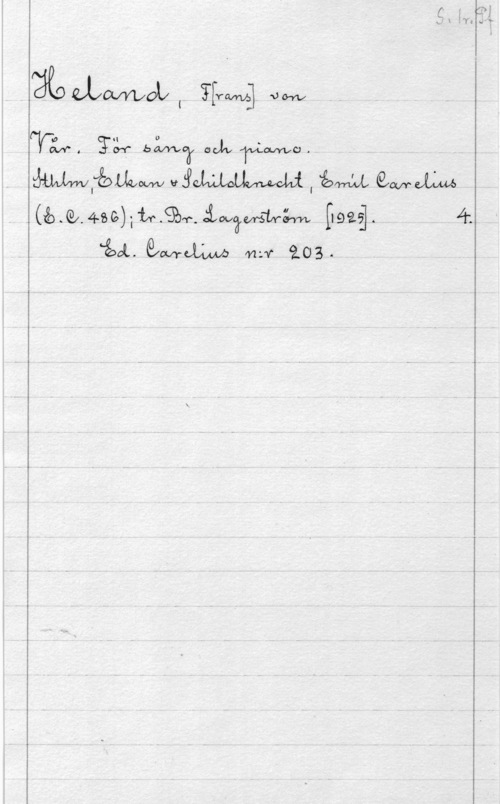 S. tr. Pf
Heland, F[rans] von
Vår. För sång och piano.
Sthlm, Elkan & Schildknecht, Emil Carelius
(E.C. 486); tr. Br. Lagerström [1925]. 4.
Ed. Carelius n:r 203.